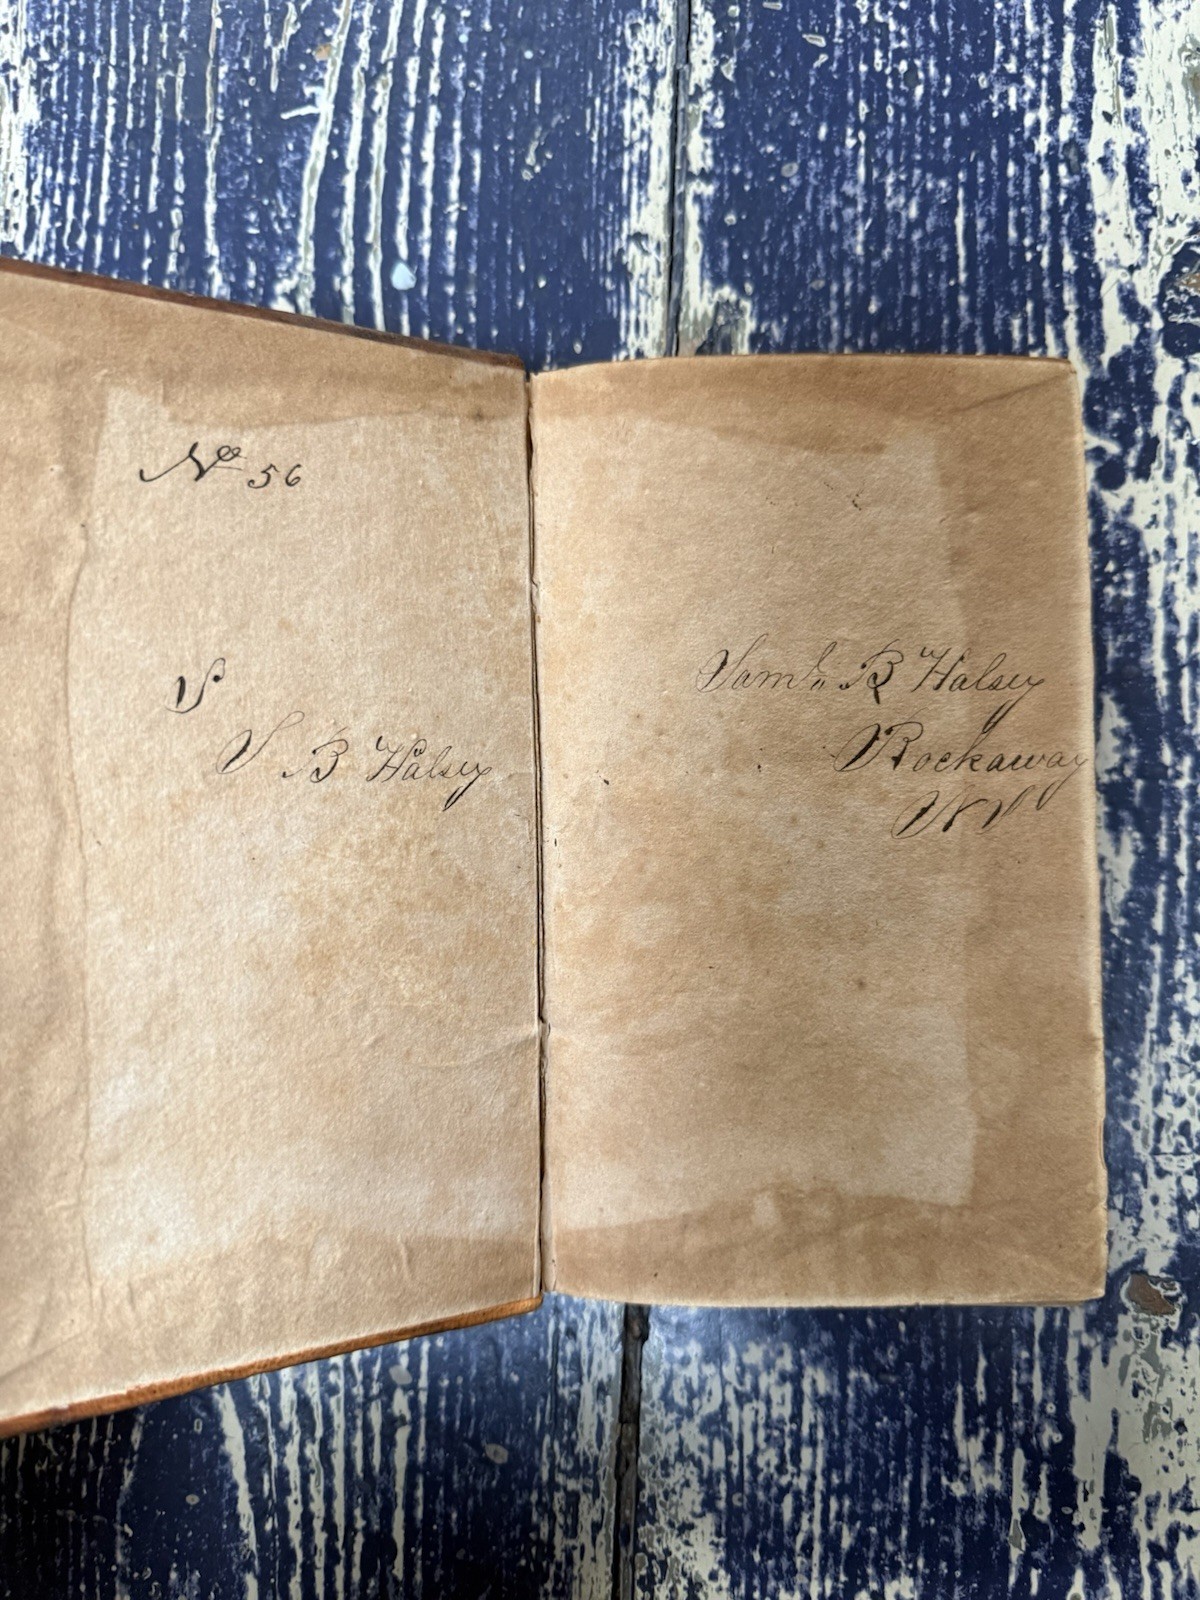 No 56
S
S B Halsey
Saml. B Halsey
Rockaway
NJ